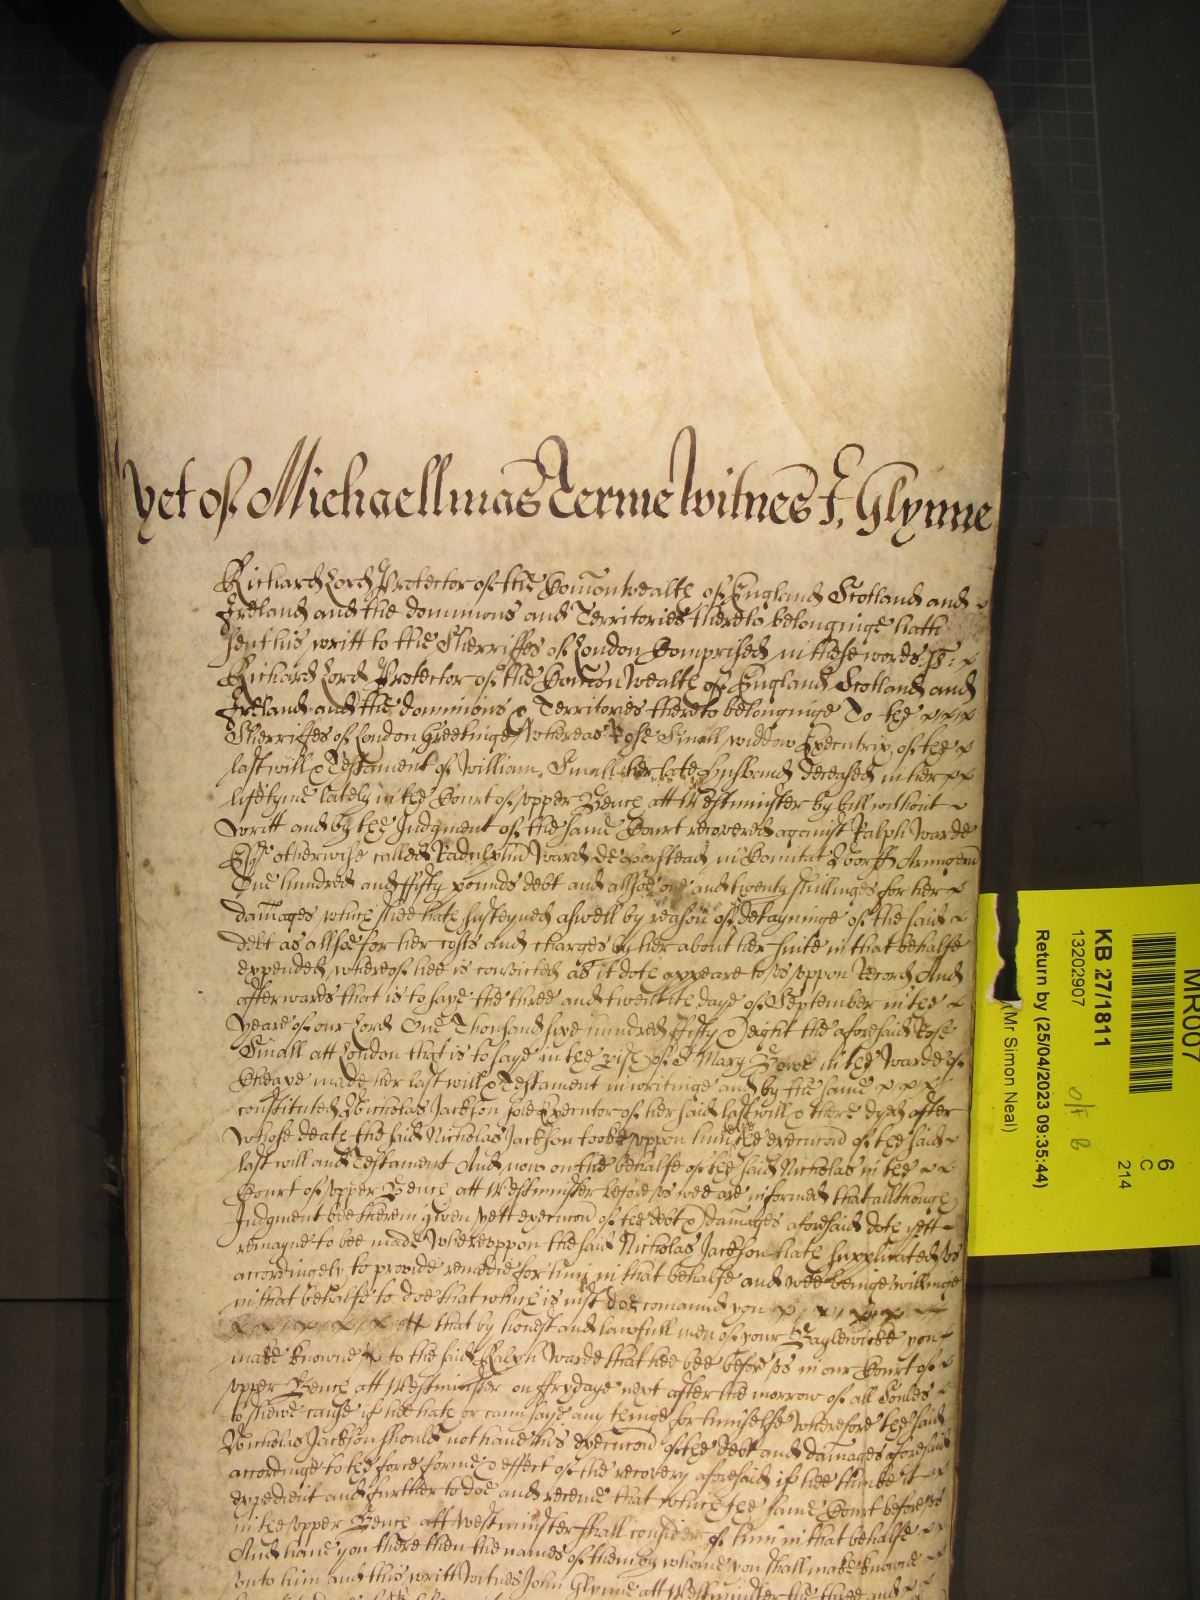 yet of Michaellmas Terme Witnes J. Glynne
Richard Lord Protector of the Comonwealth of England Scotland and
Ireland and the dominions and Territories thereto belonginge hath
sent his writt to the Sherriffes of London Comprised in these words ss:
Richard Lord Protector of the Comon Wealth of England Scotland and
Ireland and the dominions & Territories thereto belonginge To the
Sherriffes of London Greetinge Whereas Rose Small widdow Executrix of the
last will & Testament of William Small her late husband deceased in her
lifetyme lately in the Court of upper Bench att Westminster by bill without
Writt and by the Judgment of the same Court recovered against Ralph Warde
Esqr otherwise called Radulphu Ward de in Comitat Armigerum
One hundred and ffifty pounds debt and allsoe one and twenty shillinges for her
damages which shee hath susteyned aswell by reason of detayninge of the said
debt as allsoe for her costs and charges by her about her suite in that behalfe
expended whereof hee is convicted as it doth appeare to us uppon Record And
afterwards that is to saye the three and twentith daye of September in the
Yeare of our Lord One Thousand sixe hundred ffifty & eight the aforesaid Rose
Small att London that is to saye in the pish of St Mary Bowe in the Warde of
Cheape made her last will & Testament in writinge and by the same
constituted Nicholas Jackson sole Executor of her said last will & there dyed after
Whose death the said Nicholas Jackson tooke uppon himselfe the execucion of the said
last will and Testament And now on the behalfe of the said Nicholas in the
Court of upper Bench att Westminster before us wee are informed that allthough
Judgment bee therein given yett execucion of the debt & damages aforesaid doth yett
remayne to bee made Whereuppon the said Nicholas Jackson hath supplicated us
accordingely to provide remedie for him in that behalfe and wee beinge willinge
in that behalfe to doe that which is just doe comaund you
that by honest and lawfull men of your Baylewicke you
make knowne to the said Ralph Warde that hee bee before us in our Court of
upper Bench att Westminster on ffrydaye next after the morrow of all Soules
to shewe cause if hee hath or can saye any thinge for himselfe Wherefore the said
Nicholas Jackson should not have his execucion of the debt and damages aforesaid
accordinge to the force forme & effect of the recovery aforesaid if hee thinke it
expedient and further to doe and receive that which the same Court before us
in the upper Bench att Westminster shall consider of him in that behalfe
And have you there then the names of them by whome you shall make knowne
unto him and this writt Witnes John Glynne att Westminster the three and
MR007
KB 27/1811
13202907
Return by (25/04/2023 09:35:44)
(Mr Simon Neal)
6
C
214